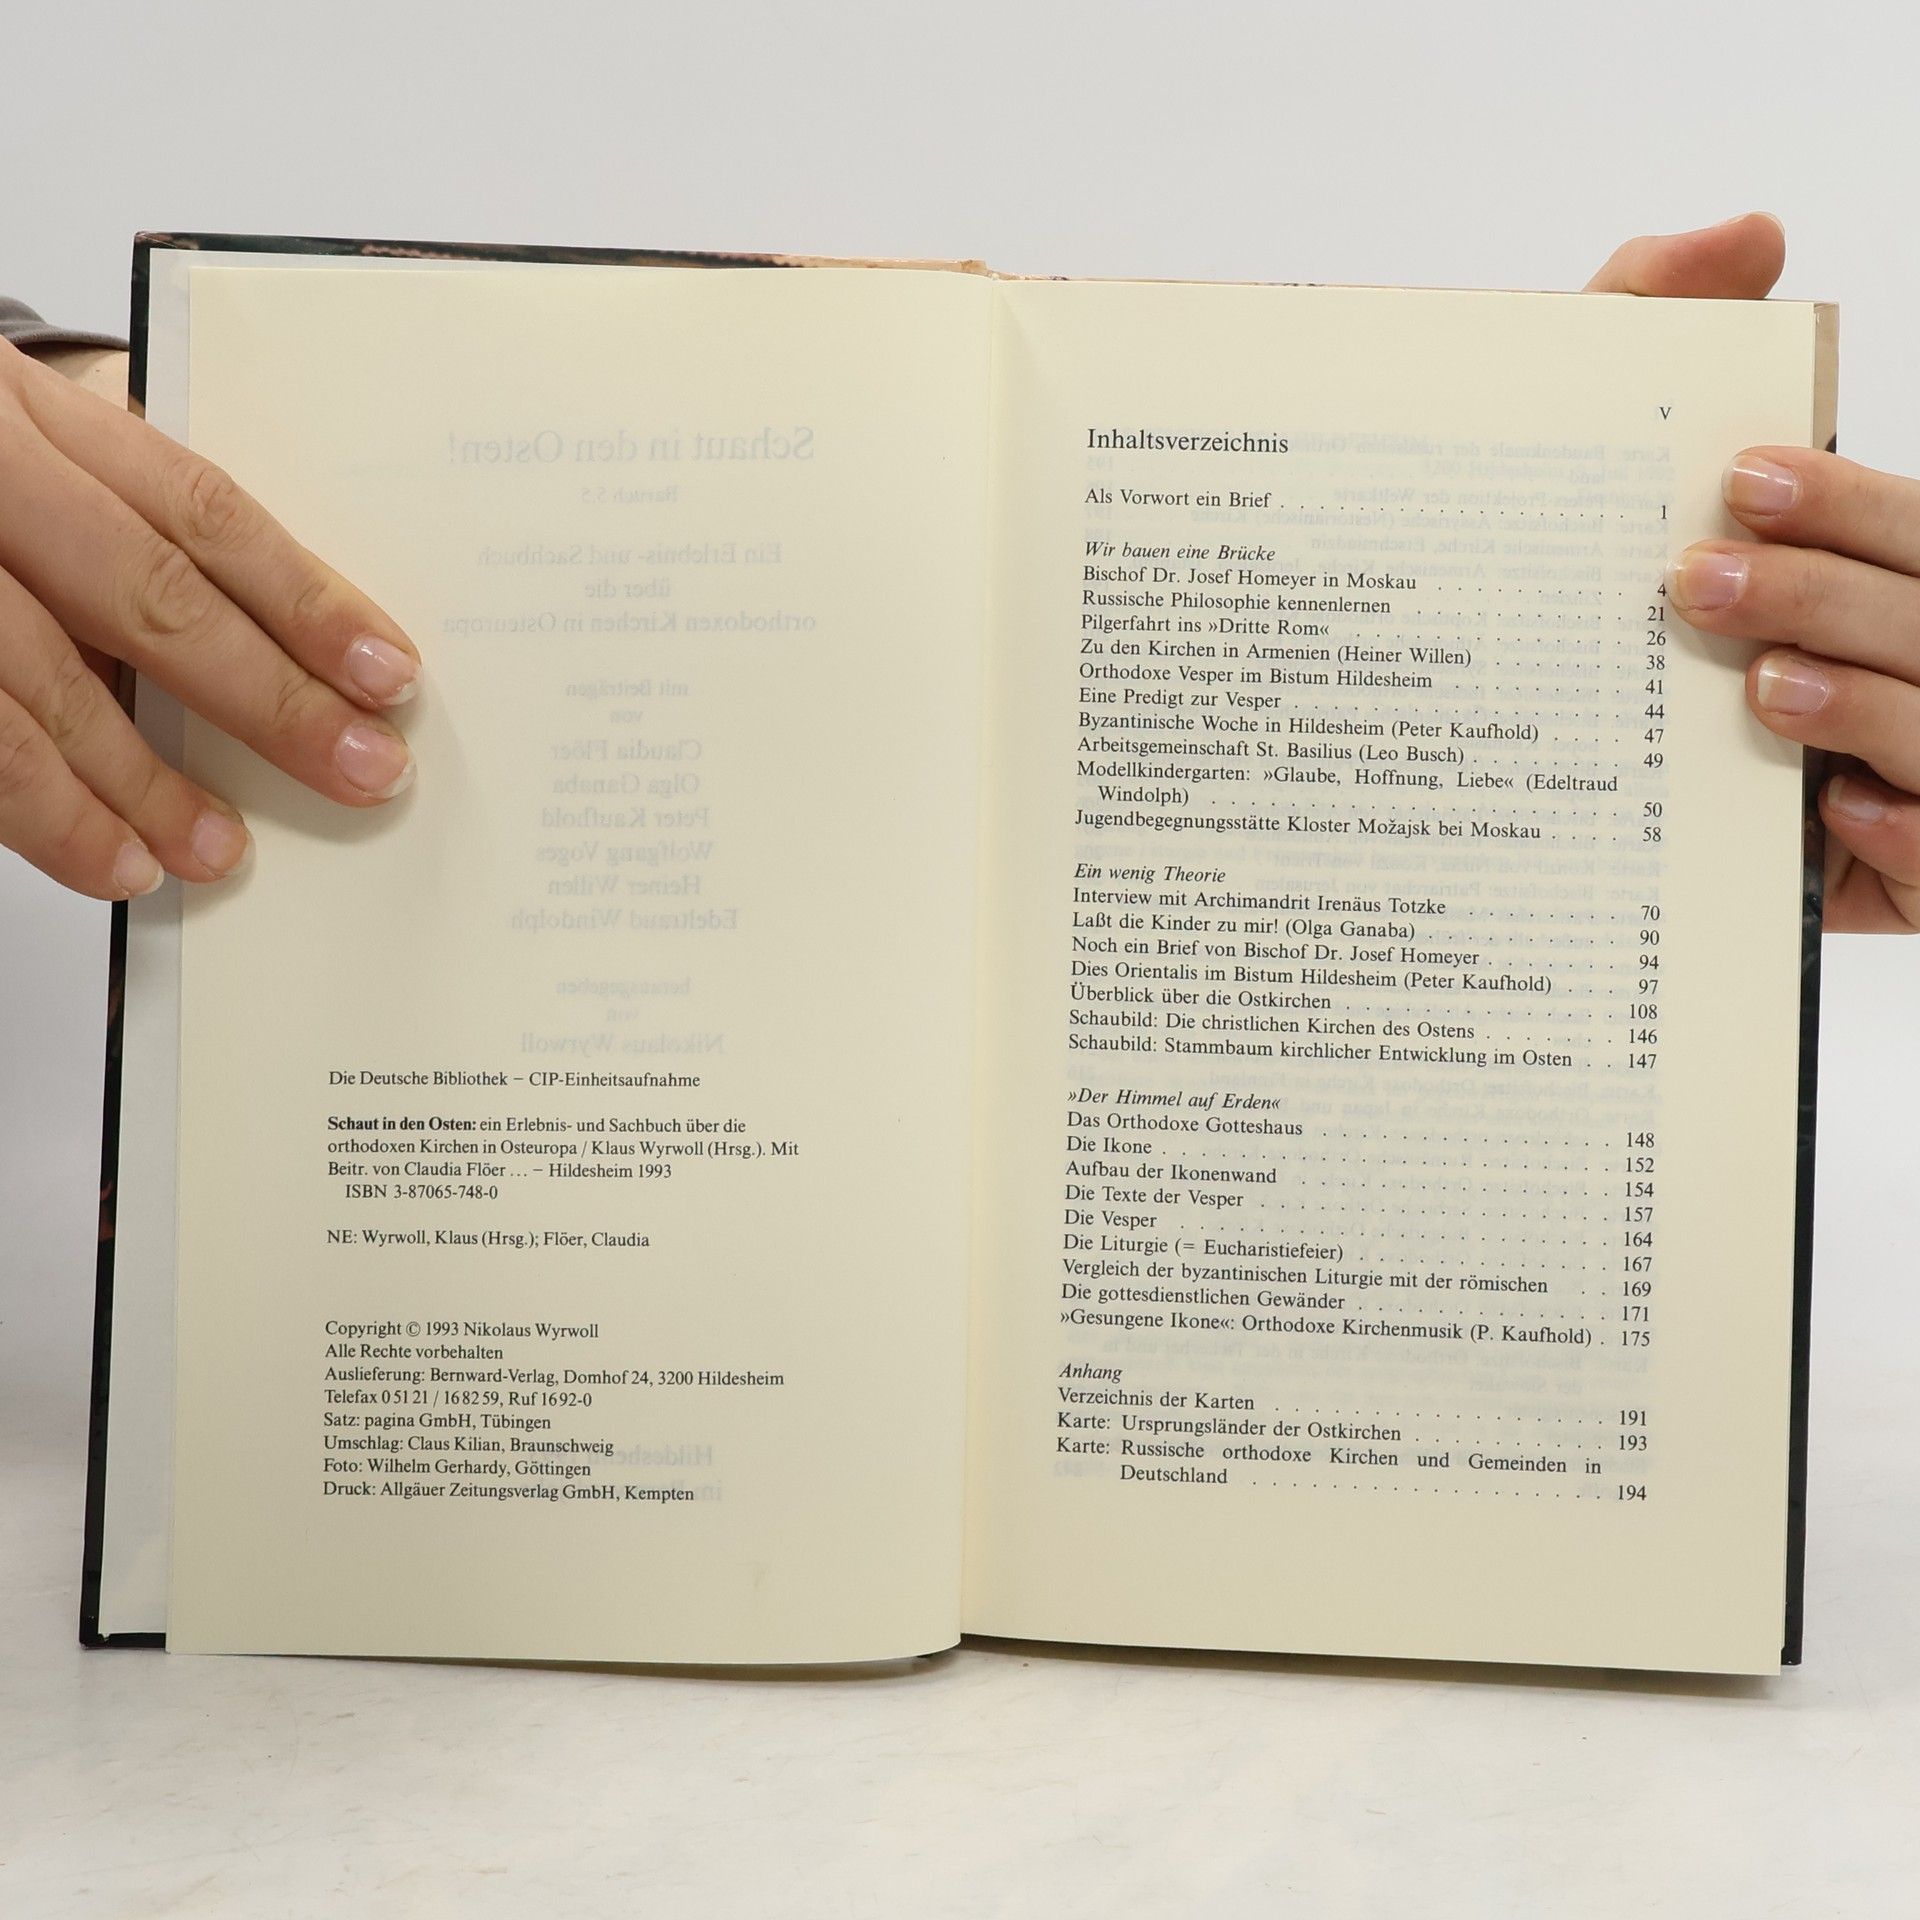 Die Deutsche Bibliothek – CIP-Einheitsaufnahme
Schaut in den Osten: ein Erlebnis- und Sachbuch über die
orthodoxen Kirchen in Osteuropa / Klaus Wyrwoll (Hrsg.). Mit
Beitr. von Claudia Flöer ... – Hildesheim 1993
ISBN 3-87065-748-0
NE: Wyrwoll, Klaus (Hrsg.); Flöer, Claudia
Copyright © 1993 Nikolaus Wyrwoll
Alle Rechte vorbehalten
Auslieferung: Bernward-Verlag, Domhof 24, 3200 Hildesheim
Telefax 0 51 21 / 16 82 59, Ruf 16 92-0
Satz: pagina GmbH, Tübingen
Umschlag: Claus Kilian, Braunschweig
Foto: Wilhelm Gerhardy, Göttingen
Druck: Allgäuer Zeitungsverlag GmbH, Kempten
V
Inhaltsverzeichnis
Als Vorwort ein Brief . . . . . . . . . . . . . . . . 1
Wir bauen eine Brücke
Bischof Dr. Josef Homeyer in Moskau . . . . . . . . . . 4
Russische Philosophie kennenlernen . . . . . . . . . . 21
Pilgerfahrt ins »Dritte Rom« . . . . . . . . . . . . . 26
Zu den Kirchen in Armenien (Heiner Willen) . . . . . . 38
Orthodoxe Vesper im Bistum Hildesheim . . . . . . . . 41
Eine Predigt zur Vesper . . . . . . . . . . . . . . . 44
Byzantinische Woche in Hildesheim (Peter Kaufhold) . . . . 47
Arbeitsgemeinschaft St. Basilius (Leo Busch) . . . . . . . 49
Modellkindergarten: »Glaube, Hoffnung, Liebe« (Edeltraud
Windolph) . . . . . . . . . . . . . . . . . . 50
Jugendbegegnungsstätte Kloster Možajsk bei Moskau . . . . 58
Ein wenig Theorie
Interview mit Archimandrit Irenäus Totzke . . . . . . . . 70
Laßt die Kinder zu mir! (Olga Ganaba) . . . . . . . . . . 90
Noch ein Brief von Bischof Dr. Josef Homeyer . . . . . . . 94
Dies Orientalis im Bistum Hildesheim (Peter Kaufhold) . . . 97
Überblick über die Ostkirchen . . . . . . . . . . . . . 108
Schaubild: Die christlichen Kirchen des Ostens . . . . . . 146
Schaubild: Stammbaum kirchlicher Entwicklung im Osten . . 147
»Der Himmel auf Erden«
Das Orthodoxe Gotteshaus . . . . . . . . . . . . . . 148
Die Ikone . . . . . . . . . . . . . . . . . . . . . 152
Aufbau der Ikonenwand . . . . . . . . . . . . . . . 154
Die Texte der Vesper . . . . . . . . . . . . . . . . 157
Die Vesper . . . . . . . . . . . . . . . . . . . . 164
Die Liturgie (= Eucharistiefeier) . . . . . . . . . . . . 167
Vergleich der byzantinischen Liturgie mit der römischen . . 169
Die gottesdienstlichen Gewänder . . . . . . . . . . . . 171
»Gesungene Ikone«: Orthodoxe Kirchenmusik (P. Kaufhold) . 175
Anhang
Verzeichnis der Karten . . . . . . . . . . . . . . . . 191
Karte: Ursprungsländer der Ostkirchen . . . . . . . . . . 193
Karte: Russische orthodoxe Kirchen und Gemeinden in
Deutschland . . . . . . . . . . . . . . . . . 194